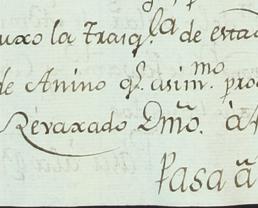 uxo la Traiq.la de estad
de Anino q.e asim.mo pro
Revaxado Dmõ. á
Pasa ã